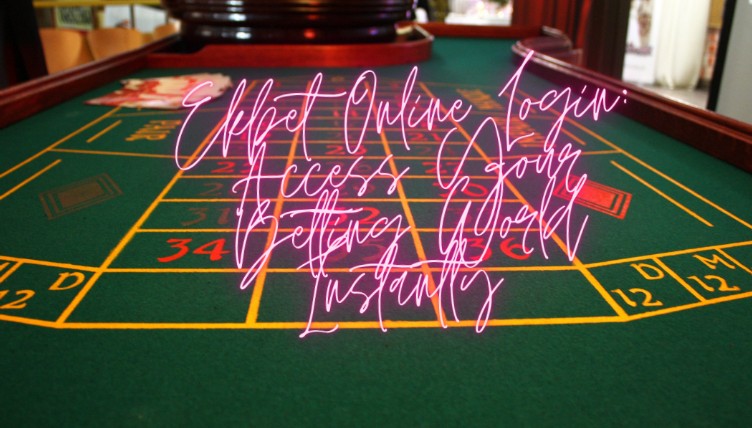 Ekbet Online Login:
Access Your
Betting World
Instantly
34 36
12 D
D 12
M 12